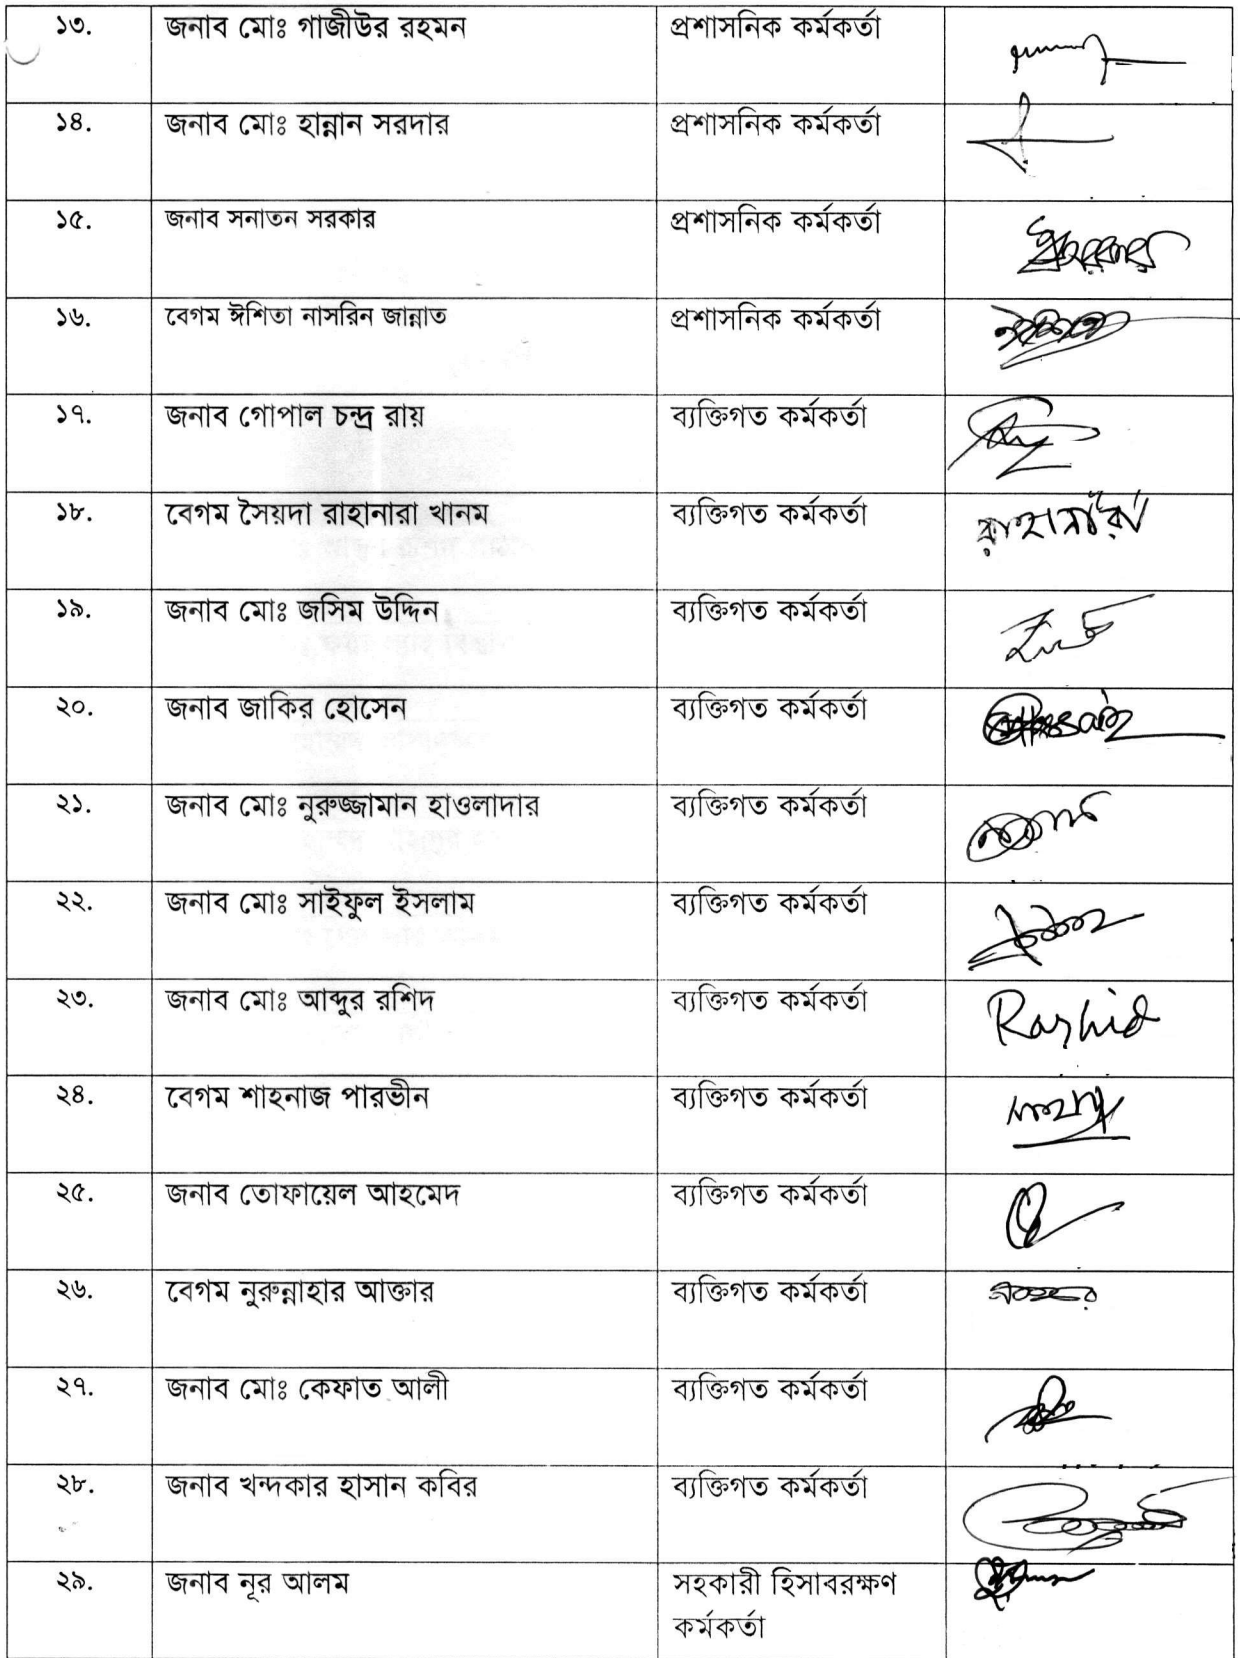 ১৩. জনাব মোঃ গাজীউর রহমন প্রশাসনিক কর্মকর্তা
১৪. জনাব মোঃ হান্নান সরদার প্রশাসনিক কর্মকর্তা
১৫. জনাব সনাতন সরকার প্রশাসনিক কর্মকর্তা
১৬. বেগম ঈশিতা নাসরিন জান্নাত প্রশাসনিক কর্মকর্তা
১৭. জনাব গোপাল চন্দ্র রায় ব্যক্তিগত কর্মকর্তা
১৮. বেগম সৈয়দা রাহানারা খানম ব্যক্তিগত কর্মকর্তা রাহানারা
১৯. জনাব মোঃ জসিম উদ্দিন ব্যক্তিগত কর্মকর্তা
২০. জনাব জাকির হোসেন ব্যক্তিগত কর্মকর্তা
২১. জনাব মোঃ নুরুজ্জামান হাওলাদার ব্যক্তিগত কর্মকর্তা
২২. জনাব মোঃ সাইফুল ইসলাম ব্যক্তিগত কর্মকর্তা
২৩. জনাব মোঃ আব্দুর রশিদ ব্যক্তিগত কর্মকর্তা Rashid
২৪. বেগম শাহনাজ পারভীন ব্যক্তিগত কর্মকর্তা
২৫. জনাব তোফায়েল আহমেদ ব্যক্তিগত কর্মকর্তা
২৬. বেগম নুরুন্নাহার আক্তার ব্যক্তিগত কর্মকর্তা
২৭. জনাব মোঃ কেফাত আলী ব্যক্তিগত কর্মকর্তা
২৮. জনাব খন্দকার হাসান কবির ব্যক্তিগত কর্মকর্তা
২৯. জনাব নূর আলম সহকারী হিসাবরক্ষণ
কর্মকর্তা